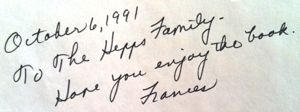 October 6, 1991
To The Hepps Family-
Hope you enjoy the book.
Frances